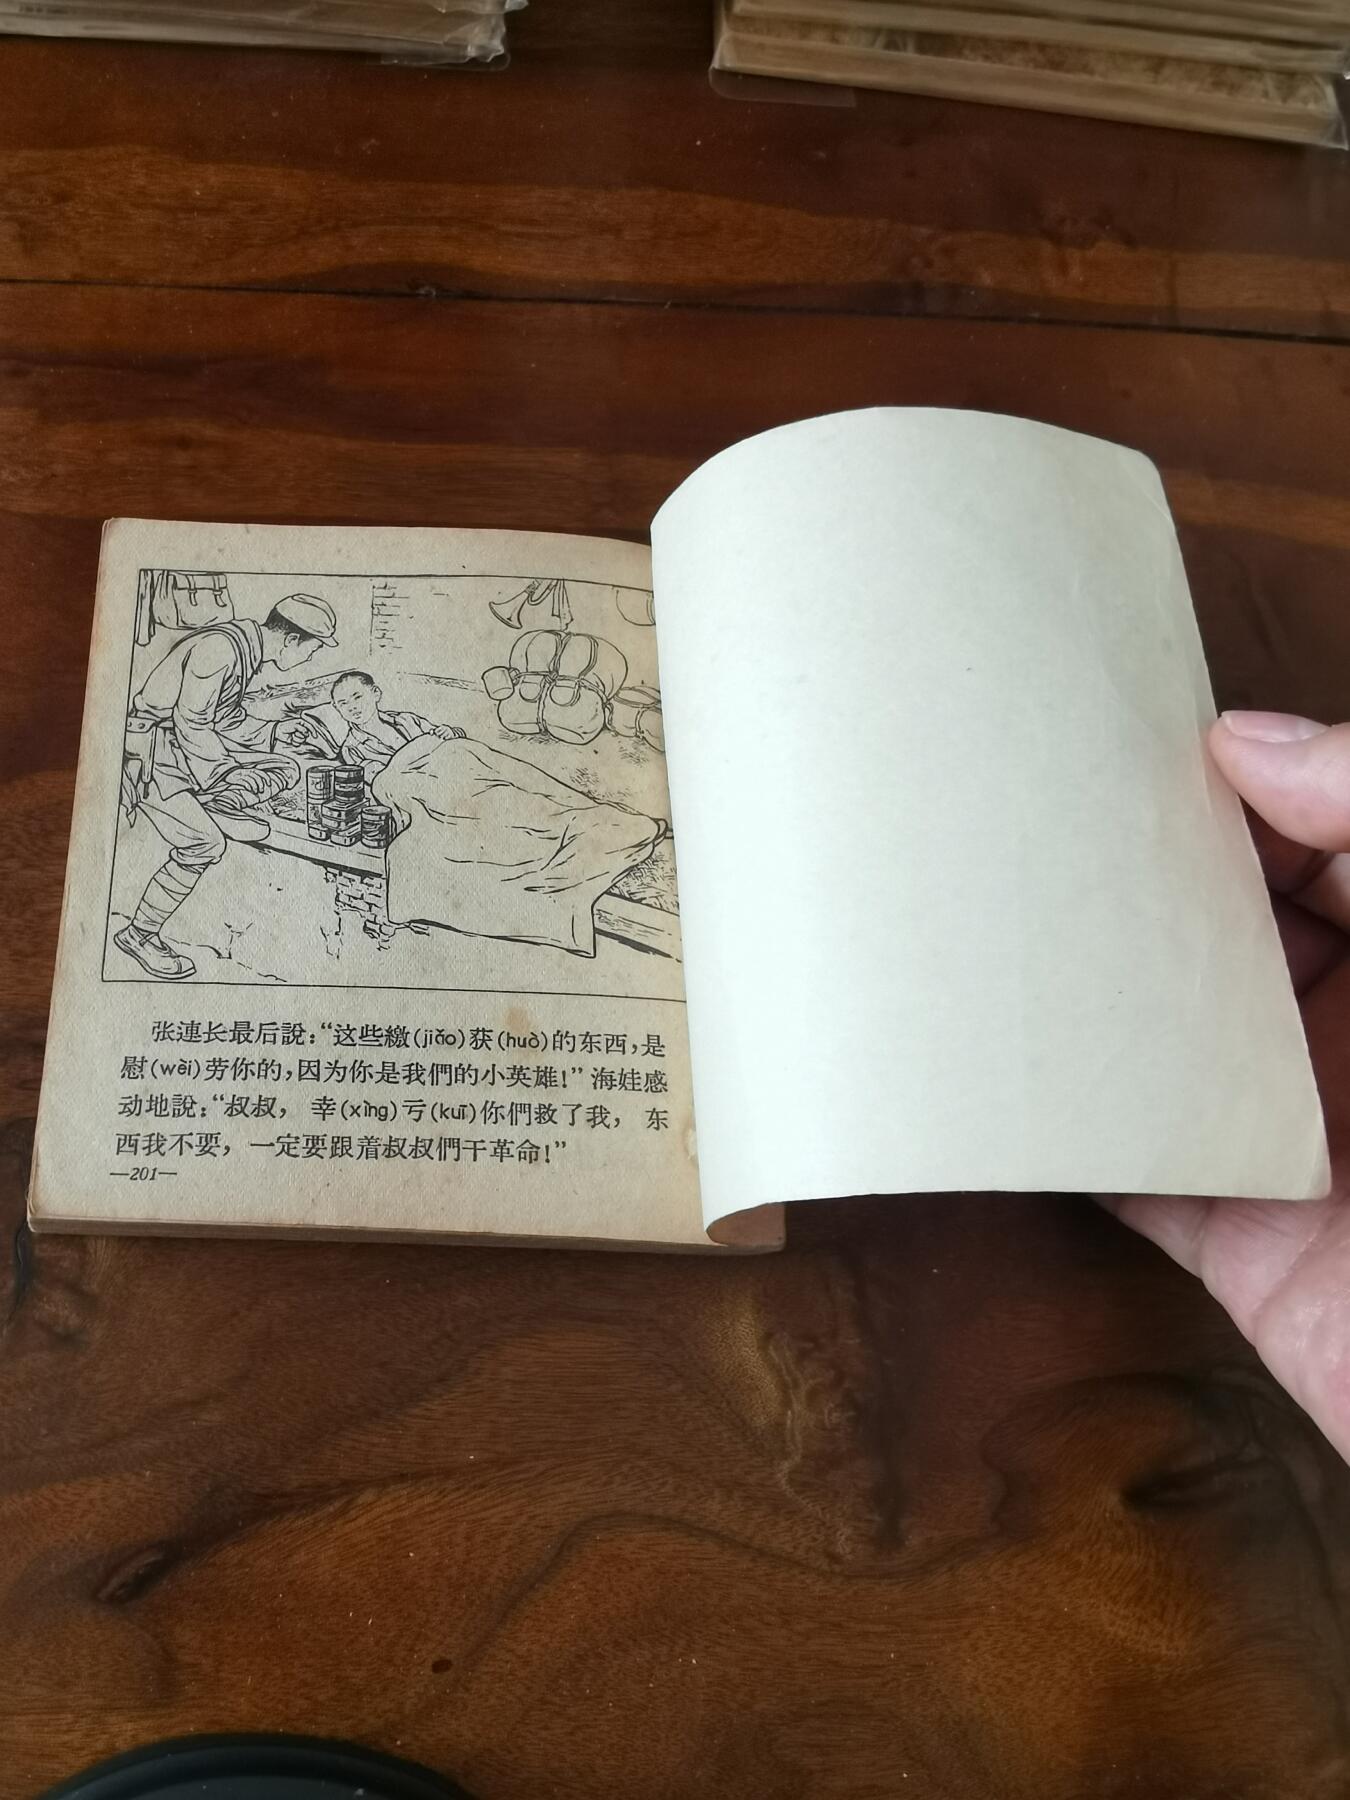 张連长最后說：“这些繳(jiǎo)获(huò)的东西，是
慰(wèi)劳你的，因为你是我們的小英雄！”海娃感
动地說：“叔叔， 幸(xìng)亏(kuī)你們救了我， 东
西我不要，一定要跟着叔叔們干革命！”
—201—